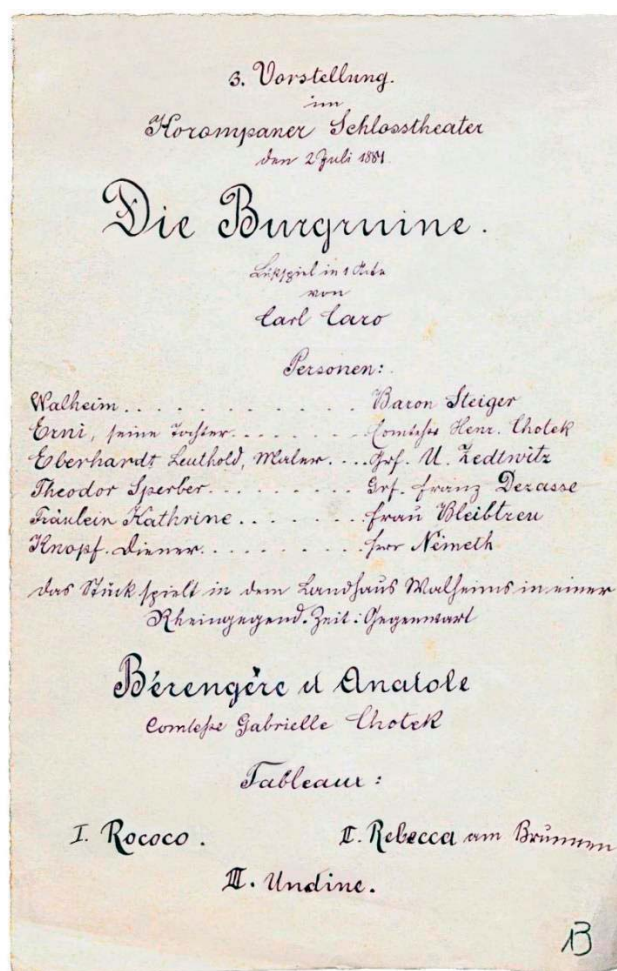 3. Vorstellung.
im
Korompaner Schlosstheater
den 2 Juli 1881.
Die Burgruine.
Lustspiel in 1 Acte
von
Carl Caro
Personen:
Walheim . . . . . . . . . . . Baron Steiger
Erni, seine Tochter . . . . . . . Comtesse Henr. Chotek
Eberhardt Leuthold, Maler . . . Grf. U. Zedtwitz
Theodor Sperber . . . . . . . . Grf. Franz Dezasse
Fräulein Kathrine . . . . . . . Frau Bleibtreu
Knopf. Diener . . . . . . . . . Herr Németh
Das Stück spielt in dem Landhaus Walheims in einer
Rheingegend. Zeit: Gegenwart
Bérengère et Anatole
Comtesse Gabrielle Chotek
Tableaux:
I. Rococo. II. Rebecca am Brunnen
III. Undine.
13